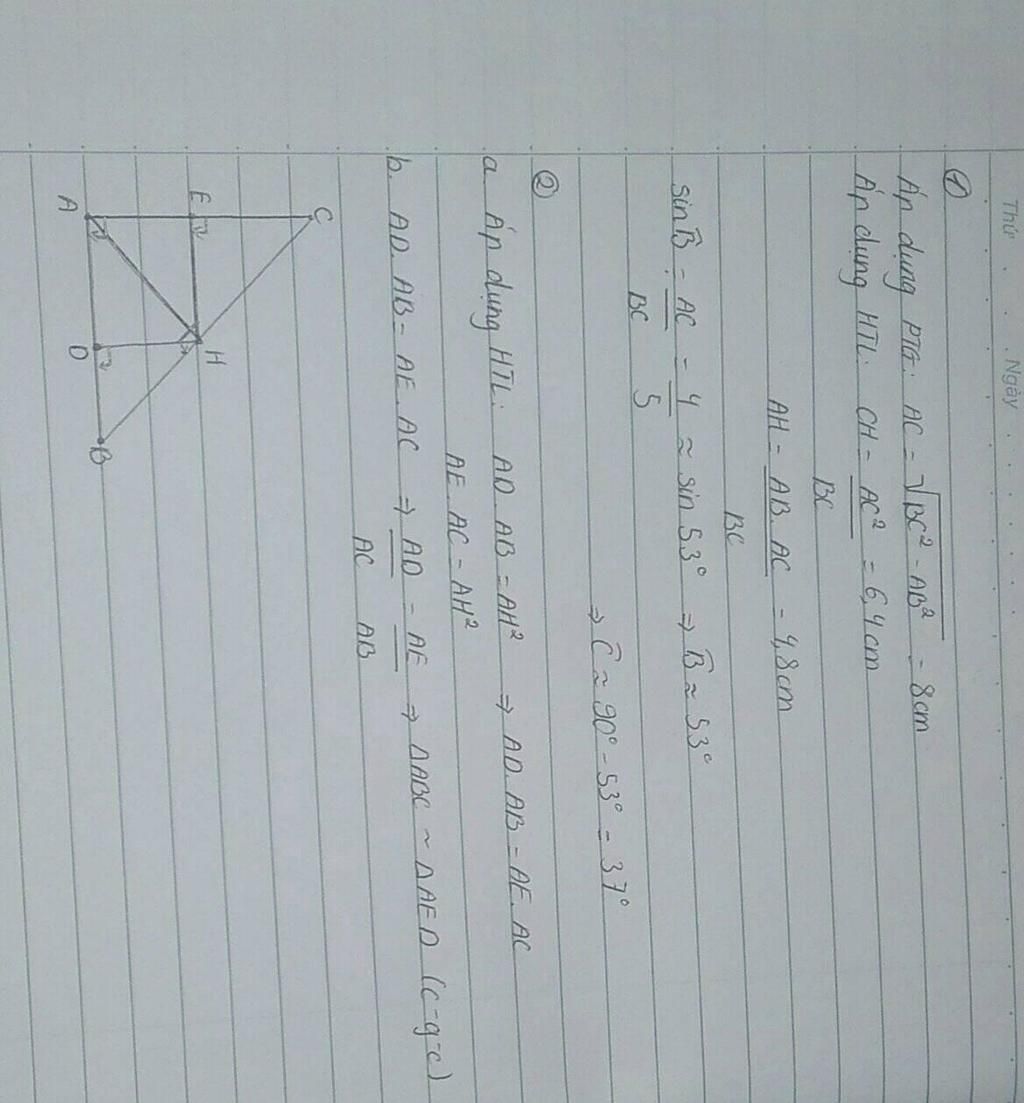 Thứ . . . Ngày . . . . . . .
①
Áp dụng PTG: AC = √BC² - AB² = 8cm
Áp dụng HTL: CH = AC² = 6,4cm
BC
AH = AB. AC = 4,8cm
BC
sin B̂ = AC = 4 ≈ sin 53° ⇒ B̂ ≈ 53°
BC 5
⇒ Ĉ ≈ 90° - 53° = 37°
②
a. Áp dụng HTL: AD. AB = AH² ⇒ AD. AB = AE. AC
AE. AC = AH²
b. AD. AB = AE. AC ⇒ AD = AE ⇒ ΔABC ~ ΔAED (c-g-c)
AC AB
C
E
H
A
D
B